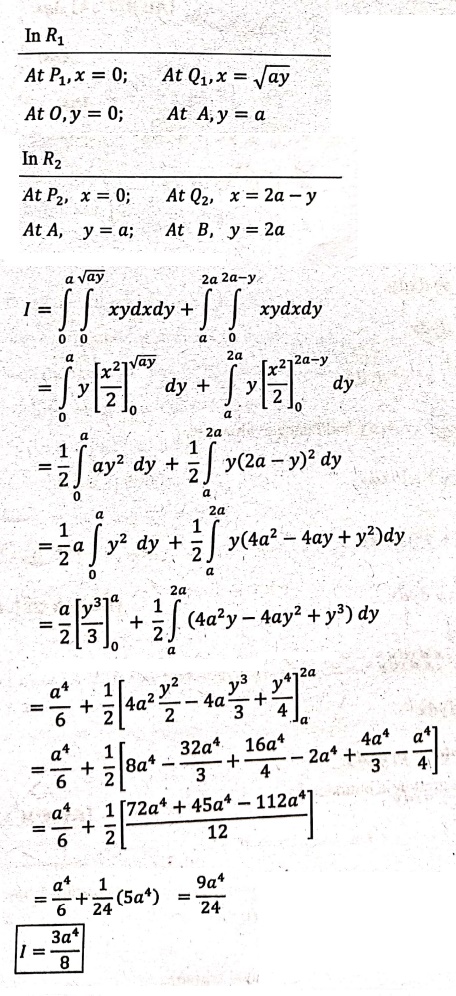 In R₁
At P₁, x = 0; At Q₁, x = √ay
At O, y = 0; At A, y = a
In R₂
At P₂, x = 0; At Q₂, x = 2a − y
At A, y = a; At B, y = 2a
I = ∫₀^a ∫₀^√ay xydxdy + ∫ₐ^2a ∫₀^2a−y xydxdy
= ∫₀^a y[x²/2]₀^√ay dy + ∫ₐ^2a y[x²/2]₀^2a−y dy
= 1/2 ∫₀^a ay² dy + 1/2 ∫ₐ^2a y(2a − y)² dy
= 1/2 a ∫₀^a y² dy + 1/2 ∫ₐ^2a y(4a² − 4ay + y²)dy
= a/2 [y³/3]₀^a + 1/2 ∫ₐ^2a (4a²y − 4ay² + y³) dy
= a⁴/6 + 1/2 [4a² y²/2 − 4a y³/3 + y⁴/4]ₐ^2a
= a⁴/6 + 1/2 [8a⁴ − 32a⁴/3 + 16a⁴/4 − 2a⁴ + 4a⁴/3 − a⁴/4]
= a⁴/6 + 1/2 [72a⁴ + 45a⁴ − 112a⁴/12]
= a⁴/6 + 1/24 (5a⁴) = 9a⁴/24
I = 3a⁴/8